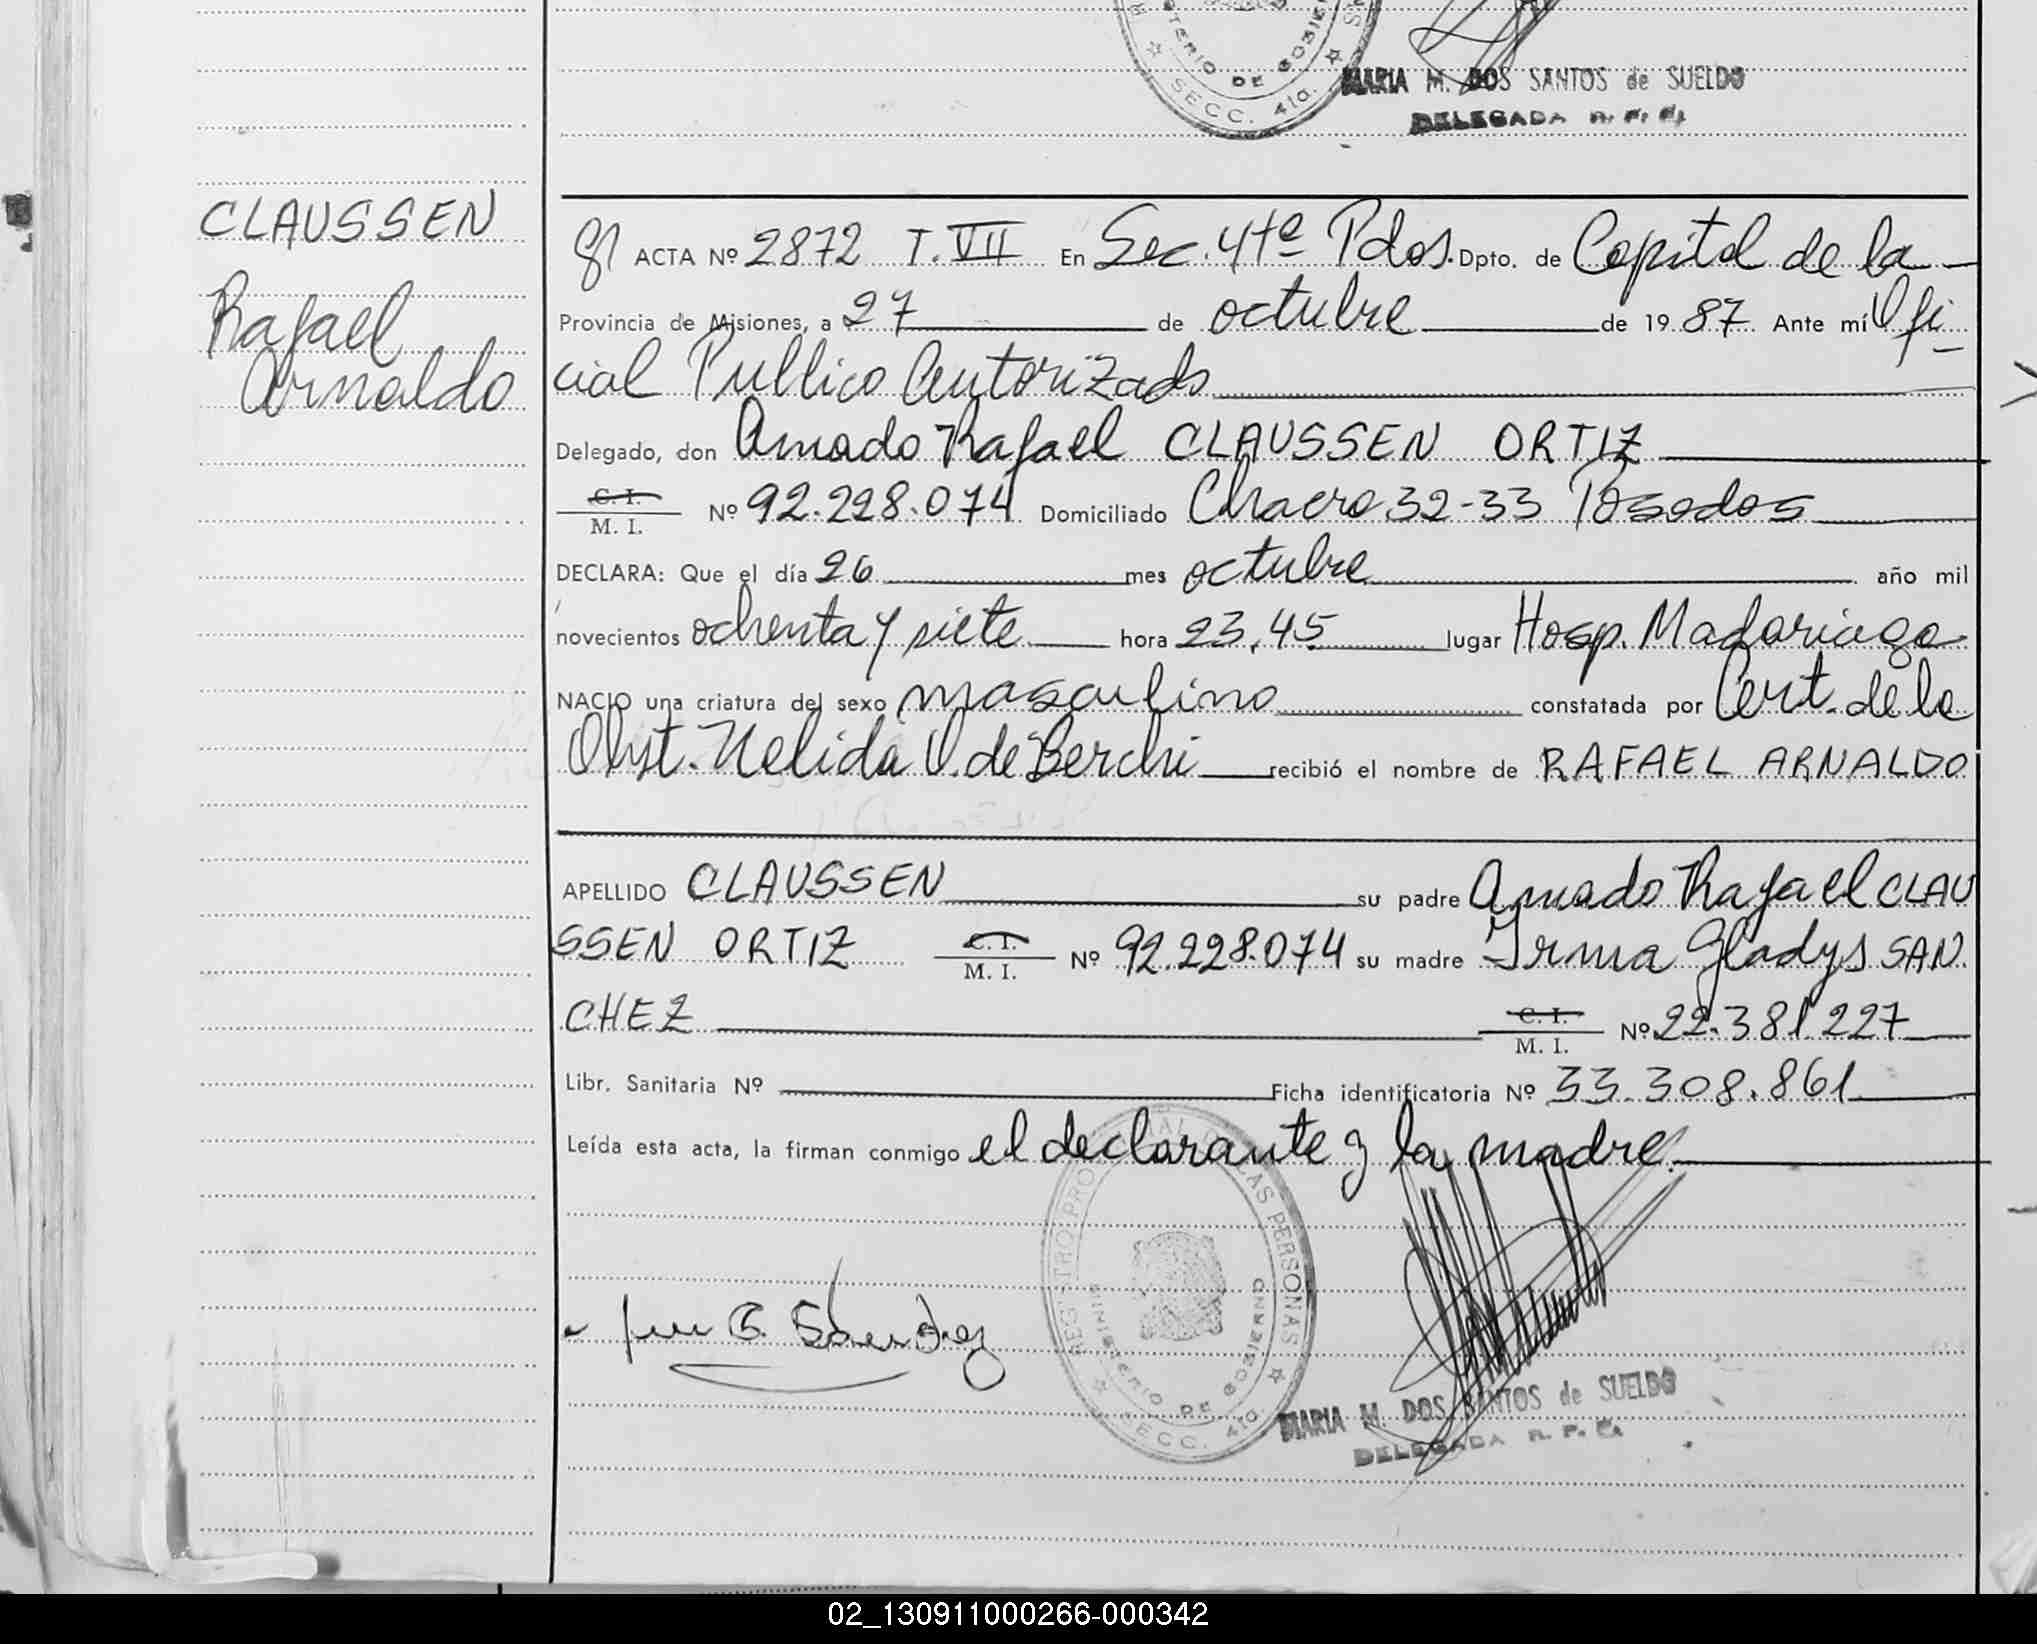 MINISTERIO DE GOBIERNO
SECC. 4ta.
MARIA M. DOS SANTOS de SUELDO
DELEGADA R. P. P.
CLAUSSEN
Rafael
Arnaldo
ACTA Nº 2872 T. VII En Sec. 4ta Pdas. Dpto. de Capital de la
Provincia de Misiones, a 27 de octubre de 1987 Ante mí Ofi
cial Publico Autorizado
Delegado, don Amado Rafael CLAUSSEN ORTIZ
C. I.
M. I. Nº 92.228.074 Domiciliado Chacra 32-33 Posadas
DECLARA: Que el día 26 mes octubre año mil
novecientos ochenta y siete hora 23,45 lugar Hosp. Madariaga
NACIO una criatura del sexo masculino constatada por Cert. de la
Obst. Nelida V. de Berchi recibió el nombre de RAFAEL ARNALDO
APELLIDO CLAUSSEN su padre Amado Rafael CLAU
SSEN ORTIZ C. I. M. I. Nº 92.228.074 su madre Irma Gladys SAN
CHEZ C. I. M. I. Nº 22.381.227
Libr. Sanitaria Nº Ficha identificatoria Nº 33.308.861
Leída esta acta, la firman conmigo el declarante y la madre.
REGISTRO PROVINCIAL DE LAS PERSONAS
MINISTERIO DE GOBIERNO
SECC. 4ta.
G. Sanchez
MARIA M. DOS SANTOS de SUELDO
DELEGADA R. P. P.
02_130911000266-000342